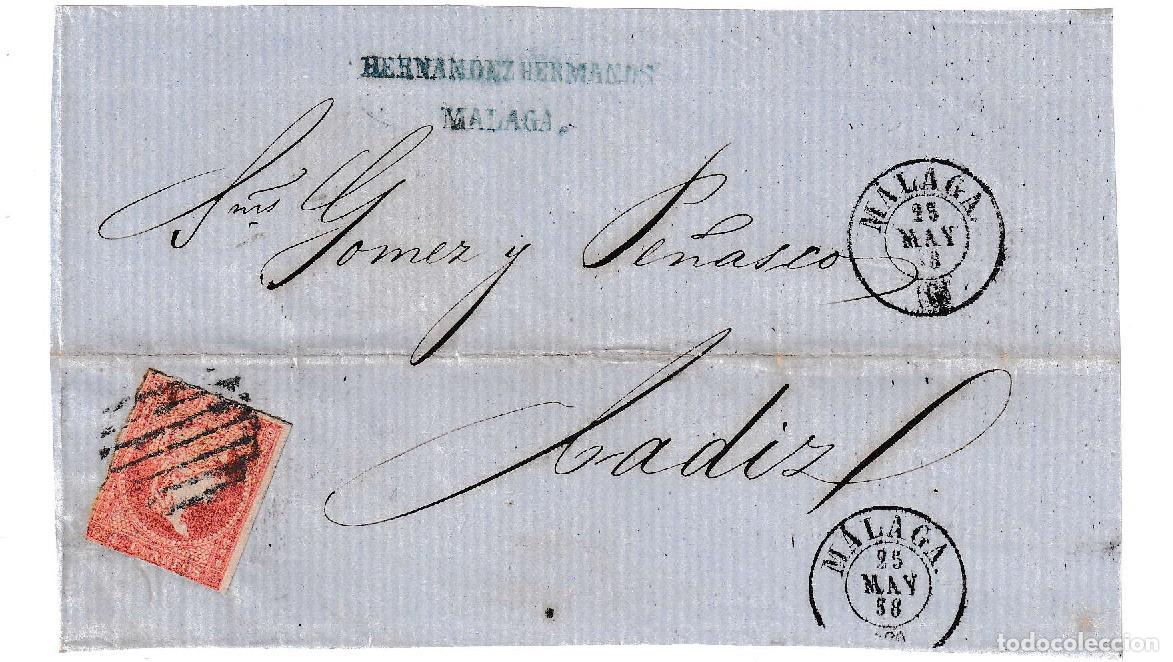 HERNANDEZ HERMANOS
MALAGA.
Sres Gomez y Peñasco
Cadiz
MALAGA.
25
MAY
58
MALAGA.
25
MAY
58
todocoleccion